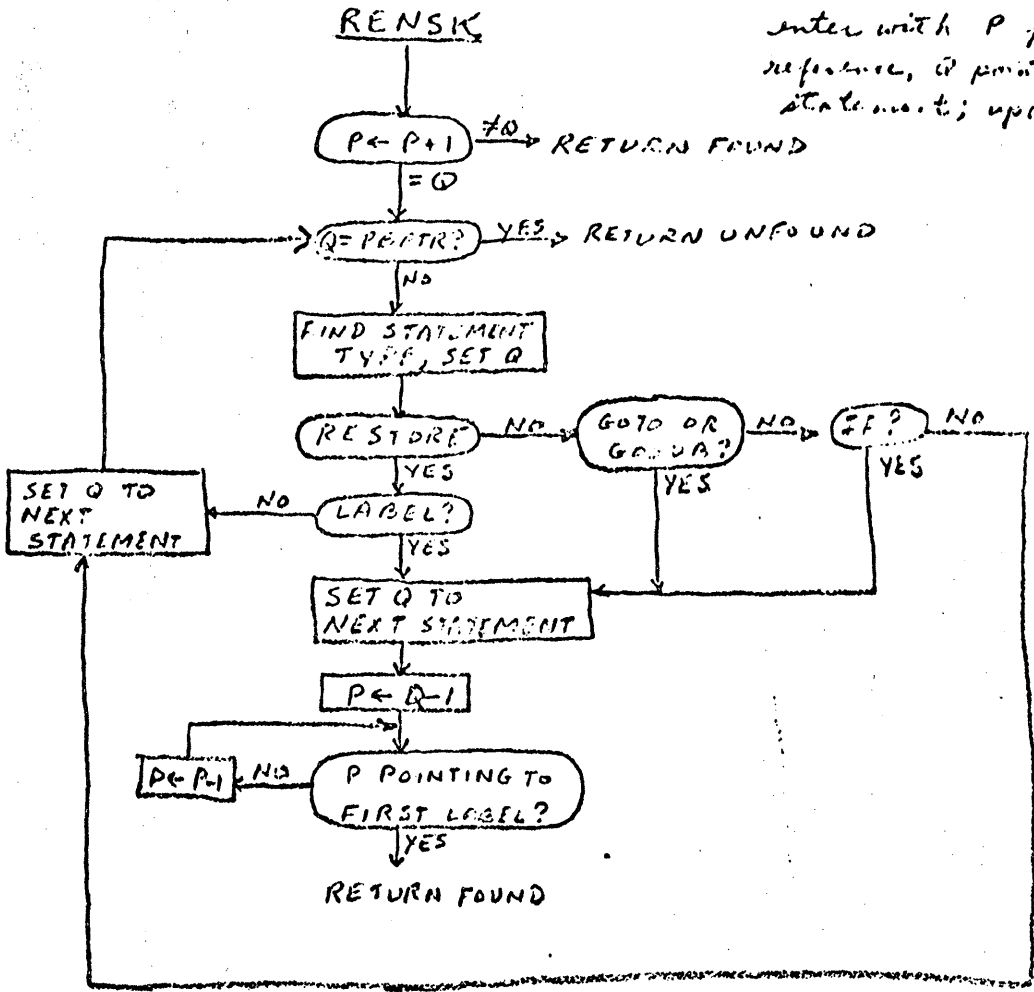 RENSK
enter with P
reference, Q
P ← P+1
≠Q
RETURN FOUND
= Q
YES
RETURN UNFOUND
NO
FIND STATEMENT
TYPE, SET Q
RESTORE
NO
GOTO OR
GOSUB?
NO
IF?
NO
YES
YES
YES
SET Q TO
NEXT
STATEMENT
NO
LABEL?
YES
SET Q TO
NEXT STATEMENT
P ← Q-1
P ← P-1
NO
P POINTING TO
FIRST LABEL?
YES
RETURN FOUND